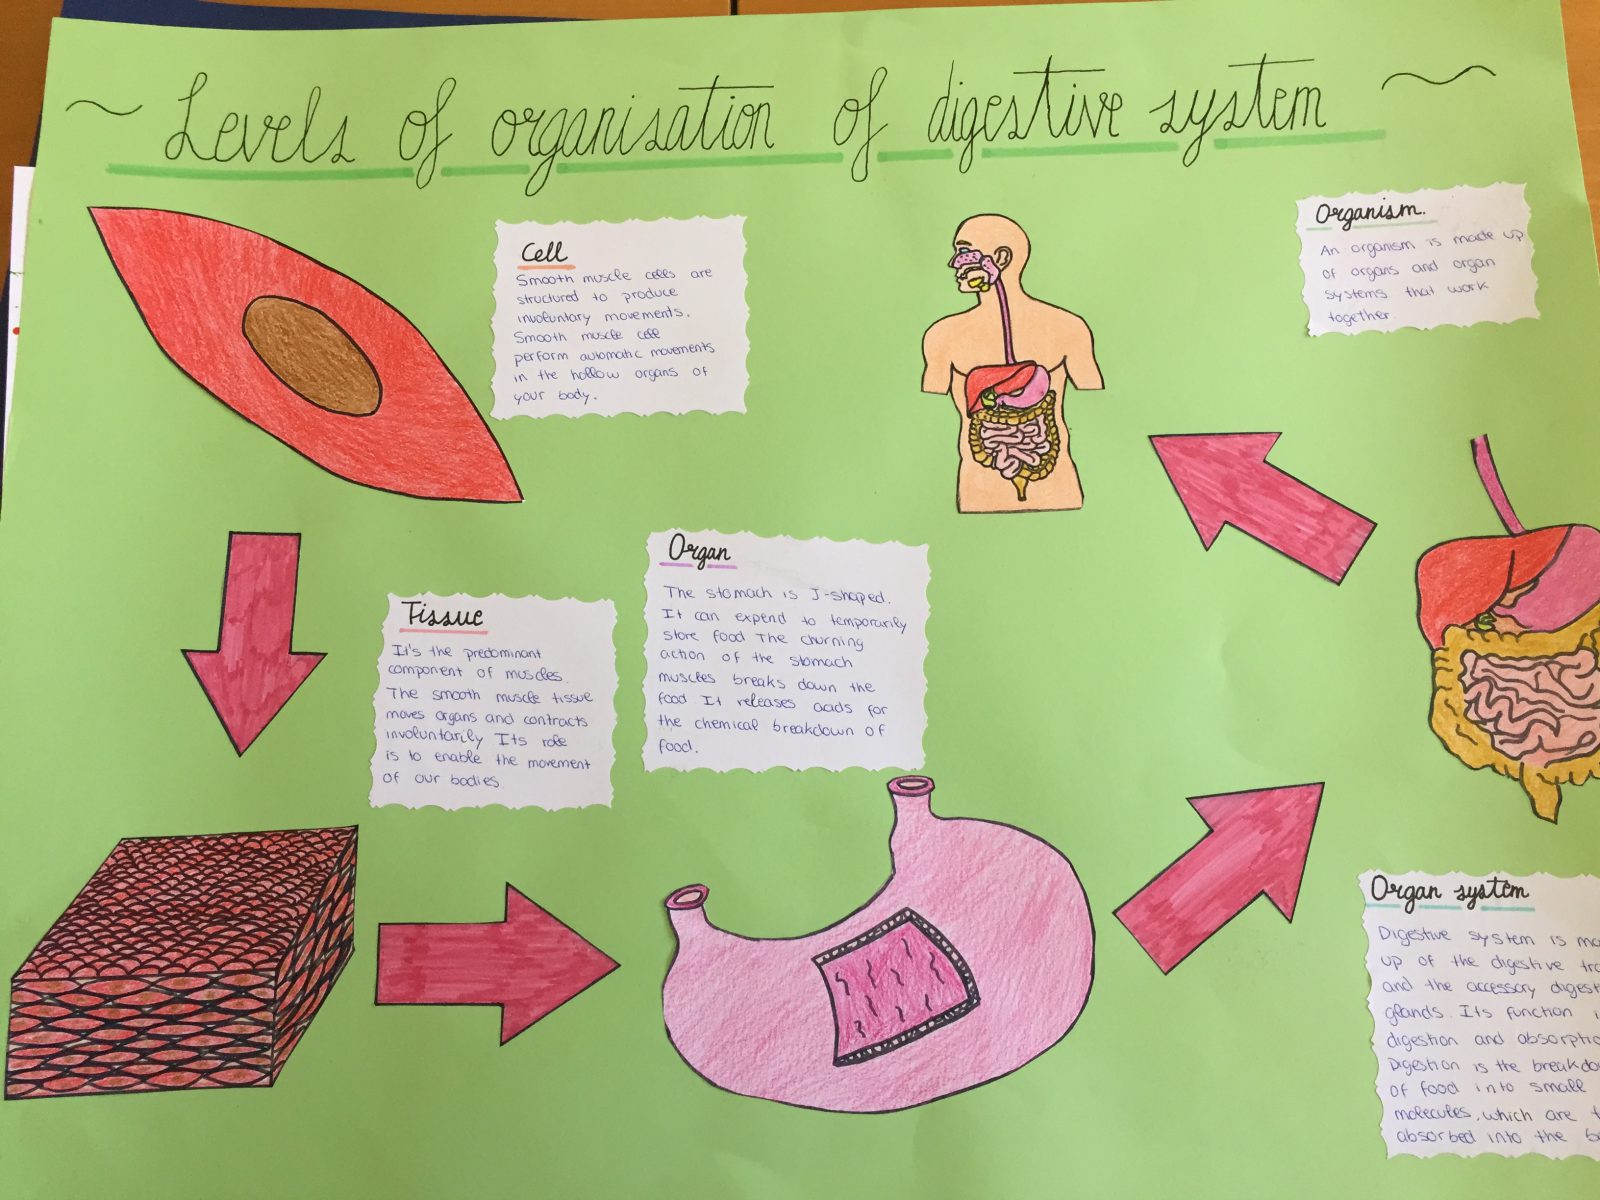 Levels of organisation of digestive system
Cell
Smooth muscle cells are
structured to produce
involuntary movements.
Smooth muscle cell
perform automatic movements
in the hollow organs of
your body.
Organism.
An organism is made up
of organs and organ
systems that work
together.
Tissue
It's the predominant
component of muscles.
The smooth muscle tissue
moves organs and contracts
involuntarily Its role
is to enable the movement
of our bodies
Organ
The stomach is J-shaped.
It can expend to temporarily
store food The churning
action of the stomach
muscles breaks down the
food It releases acids for
the chemical breakdown of
food.
Organ system
Digestive system is
up of the digestive
and the accessory
glands. Its function
digestion and
Digestion is the
of food into small
molecules, which are
absorbed into the